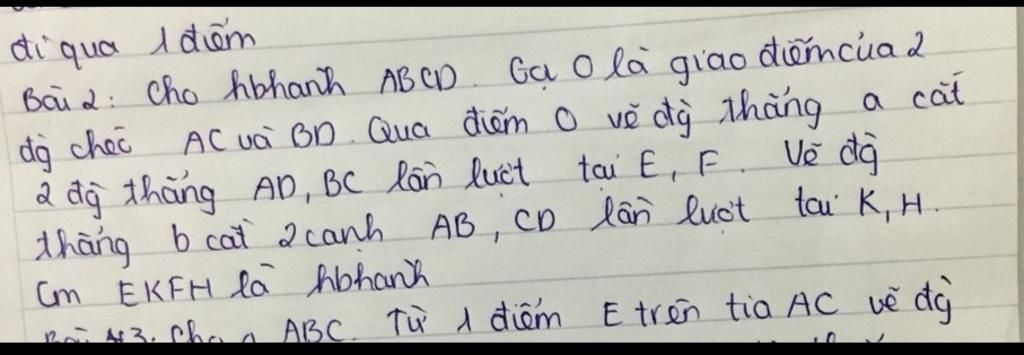 đi qua 1 điểm
Bài 2: Cho hbhanh ABCD. Gọi O là giao điểm của 2
đg chéo AC và BD. Qua điểm O vẽ đg thẳng a cắt
2 đg thẳng AD, BC lần lượt tại E, F. Vẽ đg
thẳng b cắt 2 cạnh AB, CD lần lượt tại K, H.
Cm EKFH là hbhanh
ABC. Từ 1 điểm E trên tia AC vẽ đg